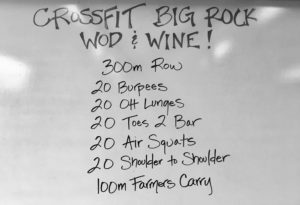 CROSSFIT BIG ROCK
WOD & WINE!
300m Row
20 Burpees
20 OH Lunges
20 Toes 2 Bar
20 Air Squats
20 Shoulder to Shoulder
100m Farmers Carry